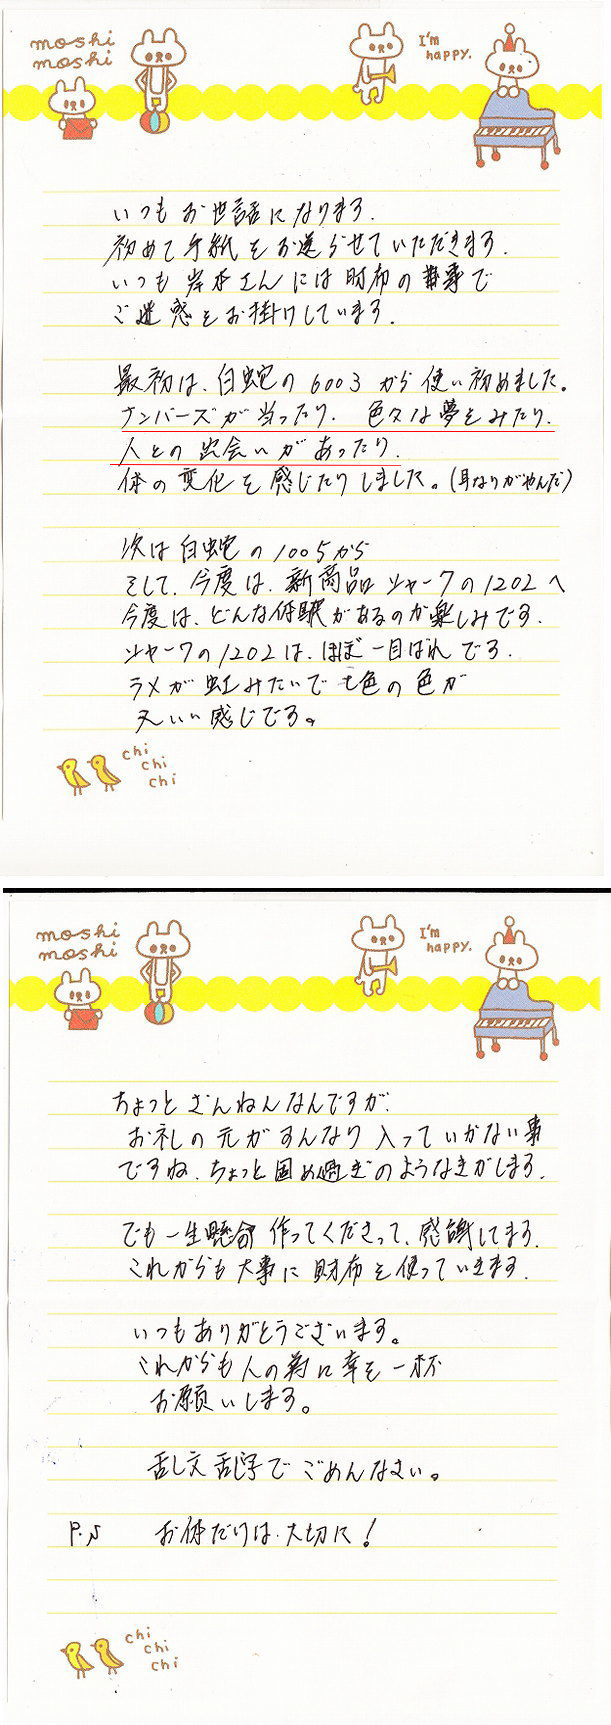 moshi
moshi
I'm
happy.
いつもお世話になります.
初めて手紙をお送らせていただきます.
いつも岸本さんには財布の事で
ご迷惑をお掛けしています.
最初は、白蛇の6003から使い初めました。
ナンバーズが当ったり、色々な夢をみたり、
人との出会いがあったり、
体の変化を感じたりしました。(耳なりがやんだ)
次は白蛇の1005から
そして、今度は、新商品シャークの1202へ
今度は、どんな体験があるのか楽しみです.
シャークの1202は、ほぼ一目ぼれです.
ラメが虹みたいで七色の色が
又いい感じです。
chi
chi
chi
moshi
moshi
I'm
happy.
ちょっとざんねんなんですが、
お札の元がすんなり入っていかない事
ですね、ちょっと固め過ぎのようなきがします.
でも一生懸命作ってくださって、感謝してます.
これからも大事に財布を使っていきます.
いつもありがとうございます。
これからも人の為に幸を一杯
お願いします。
乱文乱字でごめんなさい。
P.S お体だけは、大切に!
chi
chi
chi